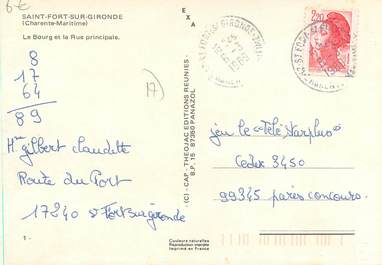 6€
SAINT-FORT-SUR-GIRONDE
(Charente-Maritime)
Le Bourg et la Rue principale.
8
17
64
89
17
gilbert claudette
Route du Port
17240 St Fort sur gironde
1 -
EXA
(C) - CAP - THEOJAC EDITIONS REUNIES -
B.P. 15 87350 PANAZOL
Couleurs naturelles
Reproduction interdite
Imprimé en France
2,20
jeu le "Télé Starplus"
Cedex 3450
99345 paris concours.